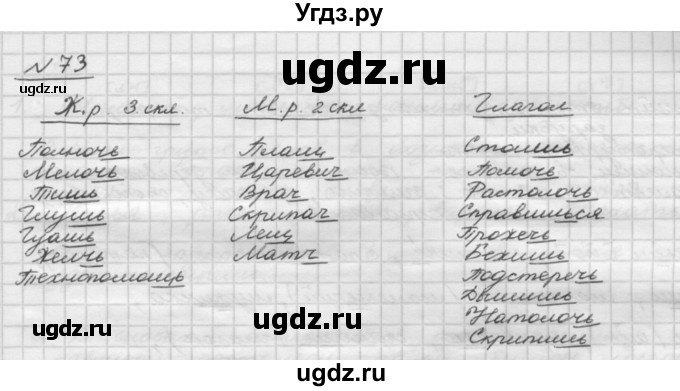 Угдз.ру
ugdz.ru
№ 73
ugdz.ru
Ж.р. 3 скл. М.р. 2 скл Глагол
Полночь Плащ Стоишь
Мелочь Царевич Помочь
Тишь Врач Растолочь
Глушь Скрипач Справишься
Гуашь Лещ Прожечь
Желчь Матч Бежишь
Технопомощь Подстеречь
Дышишь
ugdz.ru Натолочь
ugdz.ru Скрипишь